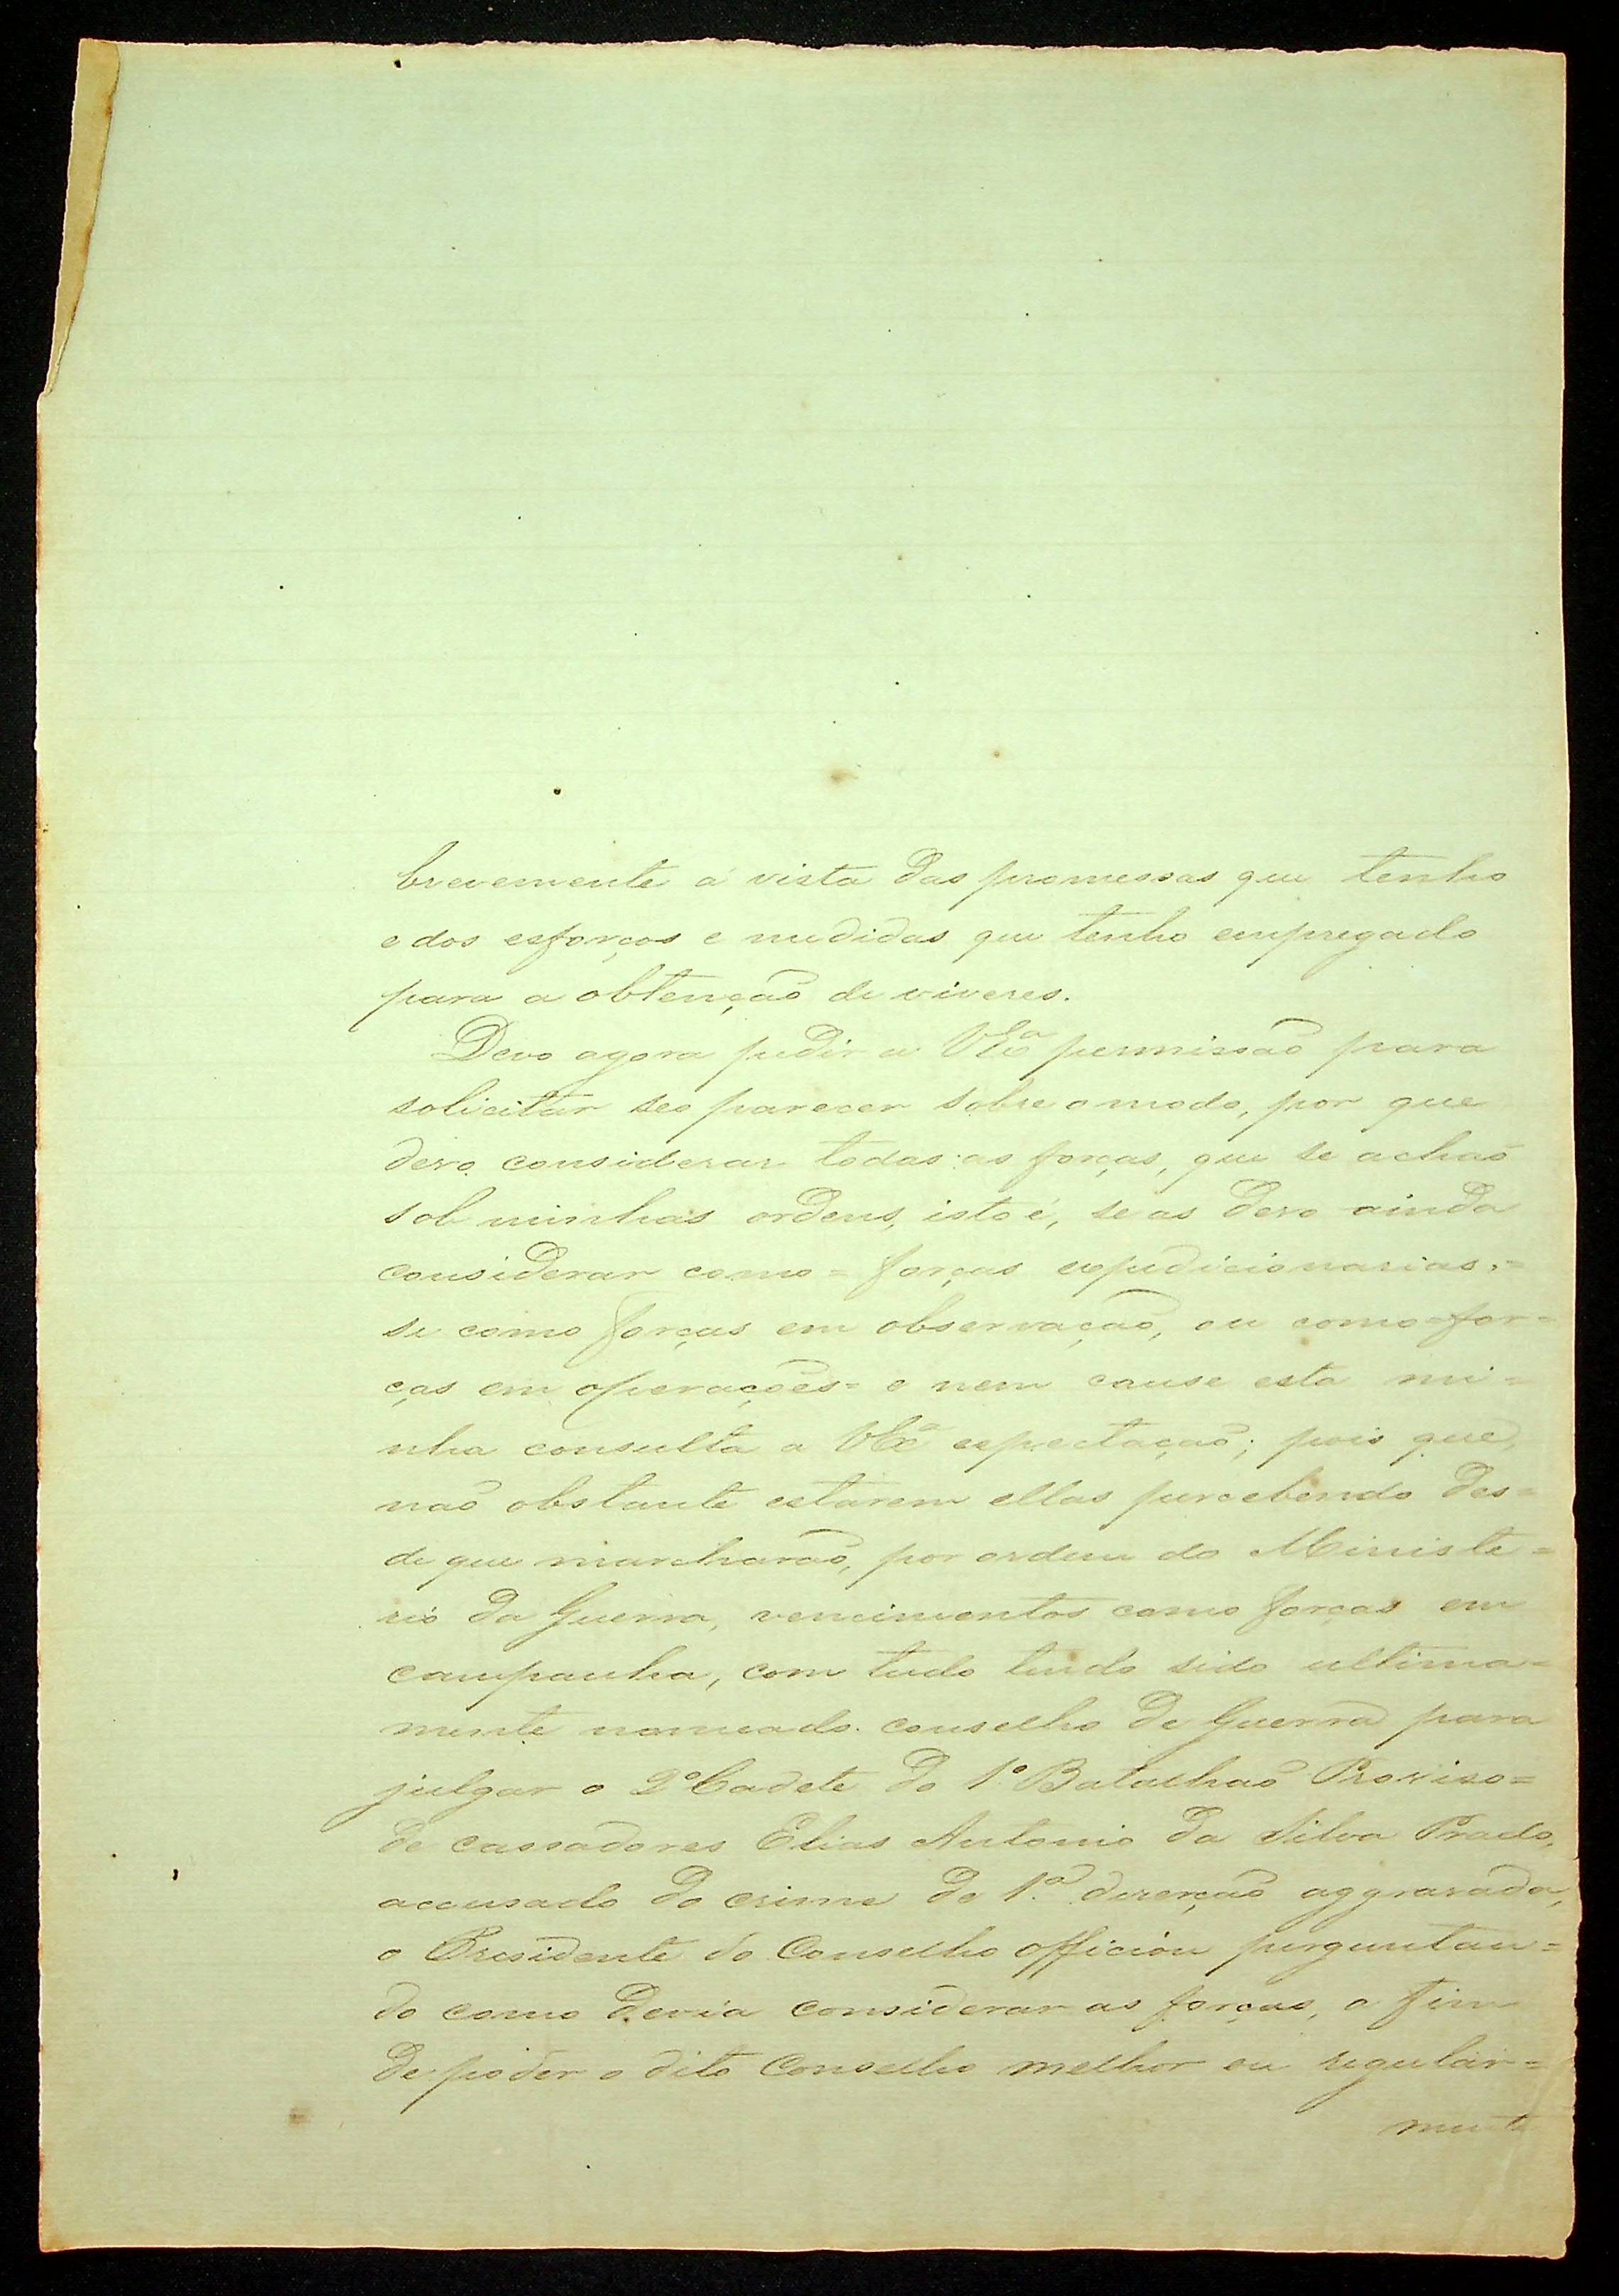 brevemente á vista das promessas que tenho
e dos esforços e medidas que tenho empregado
para a obtenção de viveres.
Devo agora pedir a VExª permissão para
solicitar seo parecer sobre o modo, por que
devo considerar todas as forças, que se achaõ
sob minhas ordens, isto é, se as devo ainda
considerar como = forças expedicionarias, =
se como forças em observação, ou como = for=
ças em operações = e nem cause esta mi=
nha consulta a VExª espectação; pois que,
naõ obstante estarem ellas percebendo des=
de que marcharaõ, por ordem do Ministe=
rio da Guerra, vencimentos como forças em
campanha, com tudo tendo sido ultima=
mente nomeado conselho de Guerra para
julgar o 2º Cadete do 1º Batalhaõ Proviso=
de cassadores Elias Antonio da Silva Prado,
accusado do crime de 1ª deserçaõ aggravada,
o Presidente do Conselho officiou perguntan=
do como devia considerar as forças, a fim
de poder o dito Conselho melhor ou regular=
mente